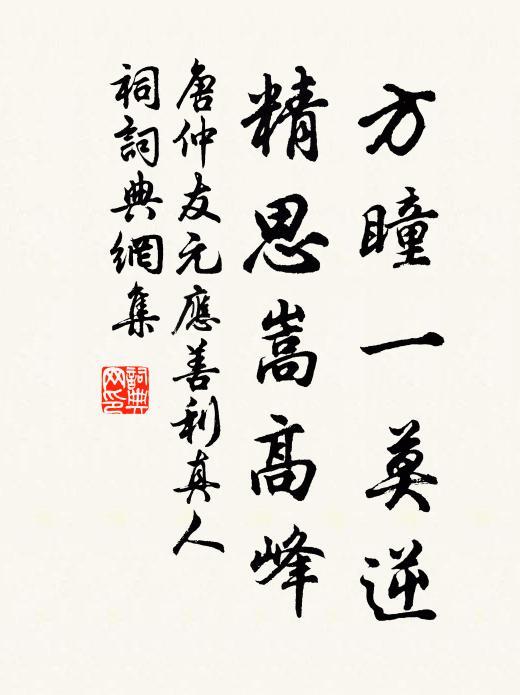 方瞳一莫逆
精思嵩高峰
唐仲友元應善利真人
祠詞典網集
詞典網印